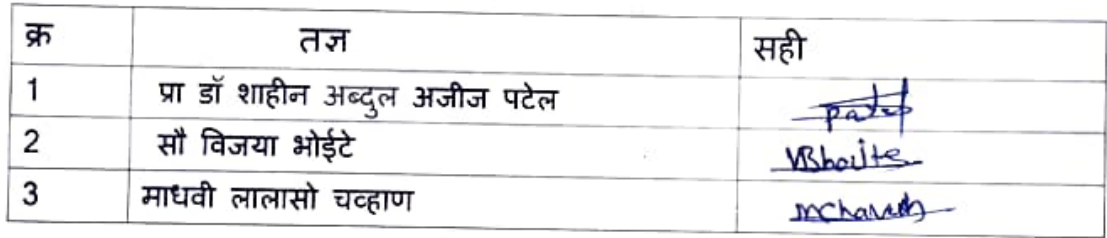 क्र तज्ञ सही
1 प्रा डॉ शाहीन अब्दुल अजीज पटेल patel
2 सौ विजया भोईटे VBhoite
3 माधवी लालासो चव्हाण mchavan